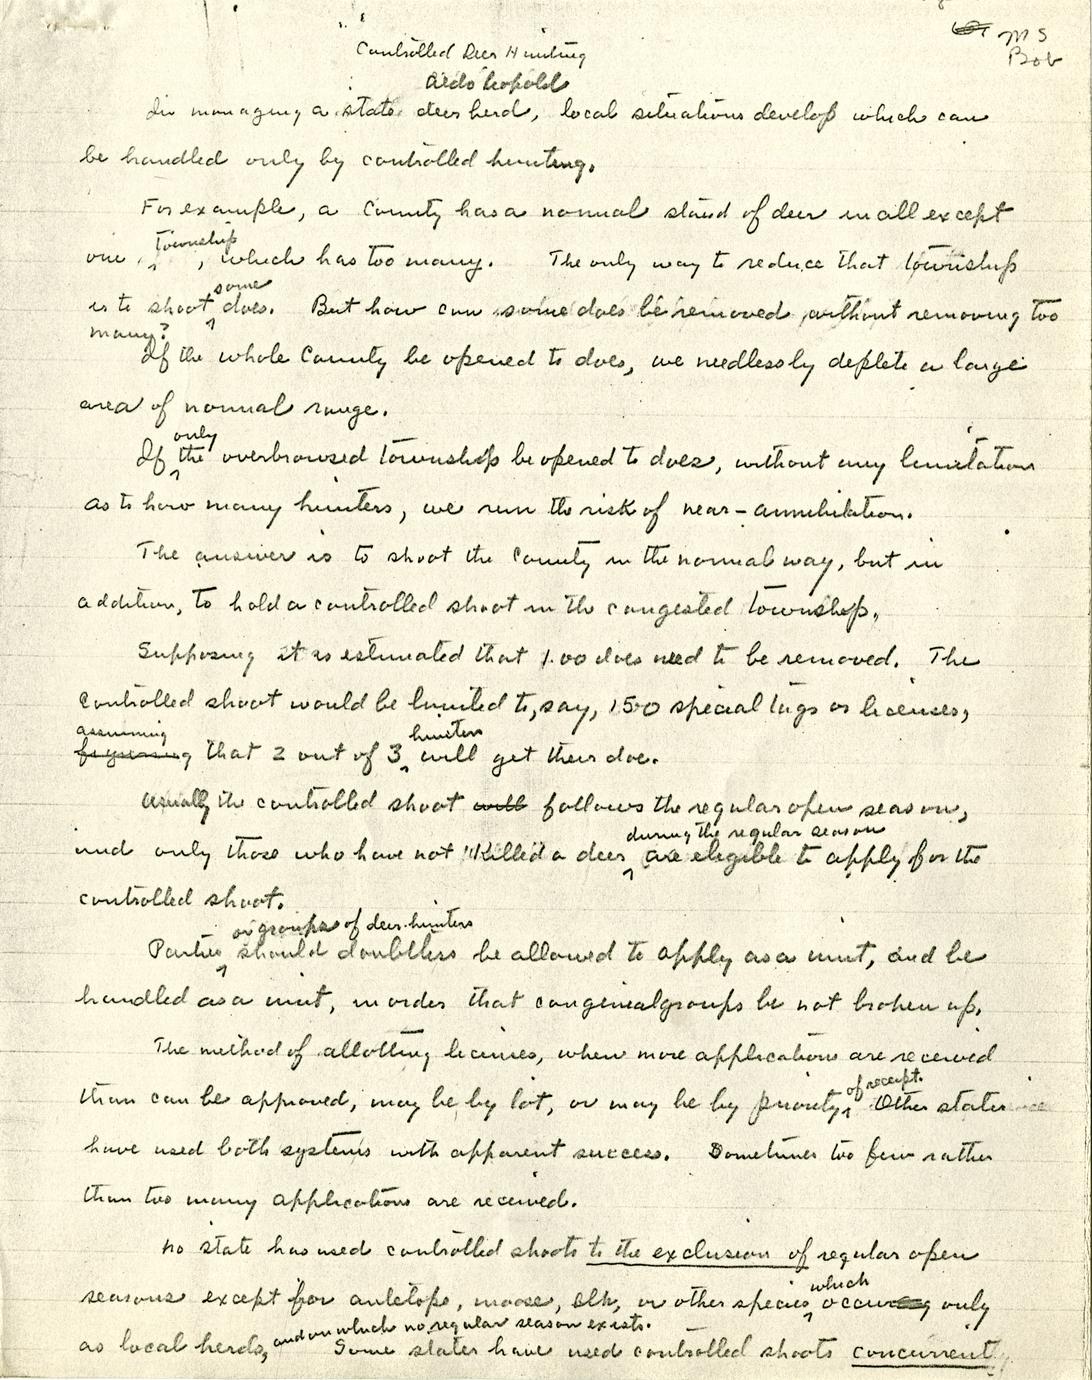 MS
Bob
Controlled Deer Hunting
Aldo Leopold
In managing a state deer herd, local situations develop which can
be handled only by controlled hunting.
For example, a County has a normal stand of deer in all except
one township, which has too many. The only way to reduce that township
is to shoot some does. But how can some does be removed without removing too
many?
If the whole County be opened to does, we needlessly deplete a large
area of normal range.
If only the overbrowsed township be opened to does, without any limitation
as to how many hunters, we run the risk of near-annihilation.
The answer is to shoot the County in the normal way, but in
addition, to hold a controlled shoot in the congested township.
Supposing it is estimated that 100 does need to be removed. The
controlled shoot would be limited to, say, 150 special tags or licenses,
assuming figuring that 2 out of 3 hunters will get their doe.
Usually the controlled shoot will follows the regular open season,
and only those who have not killed a deer during the regular season are eligible to apply for the
controlled shoot.
Parties or groups of deer hunters should doubtless be allowed to apply as a unit, and be
handled as a unit, in order that congenial groups be not broken up.
The method of allotting licenses, when more applications are received
than can be approved, may be by lot, or may be by priority of receipt. Other states
have used both systems with apparent success. Sometimes too few rather
than too many applications are received.
No state has used controlled shoots to the exclusion of regular open
seasons except for antelope, moose, elk, or other species which occur only
as local herds, and on which no regular season exists. Some states have used controlled shoots concurrently